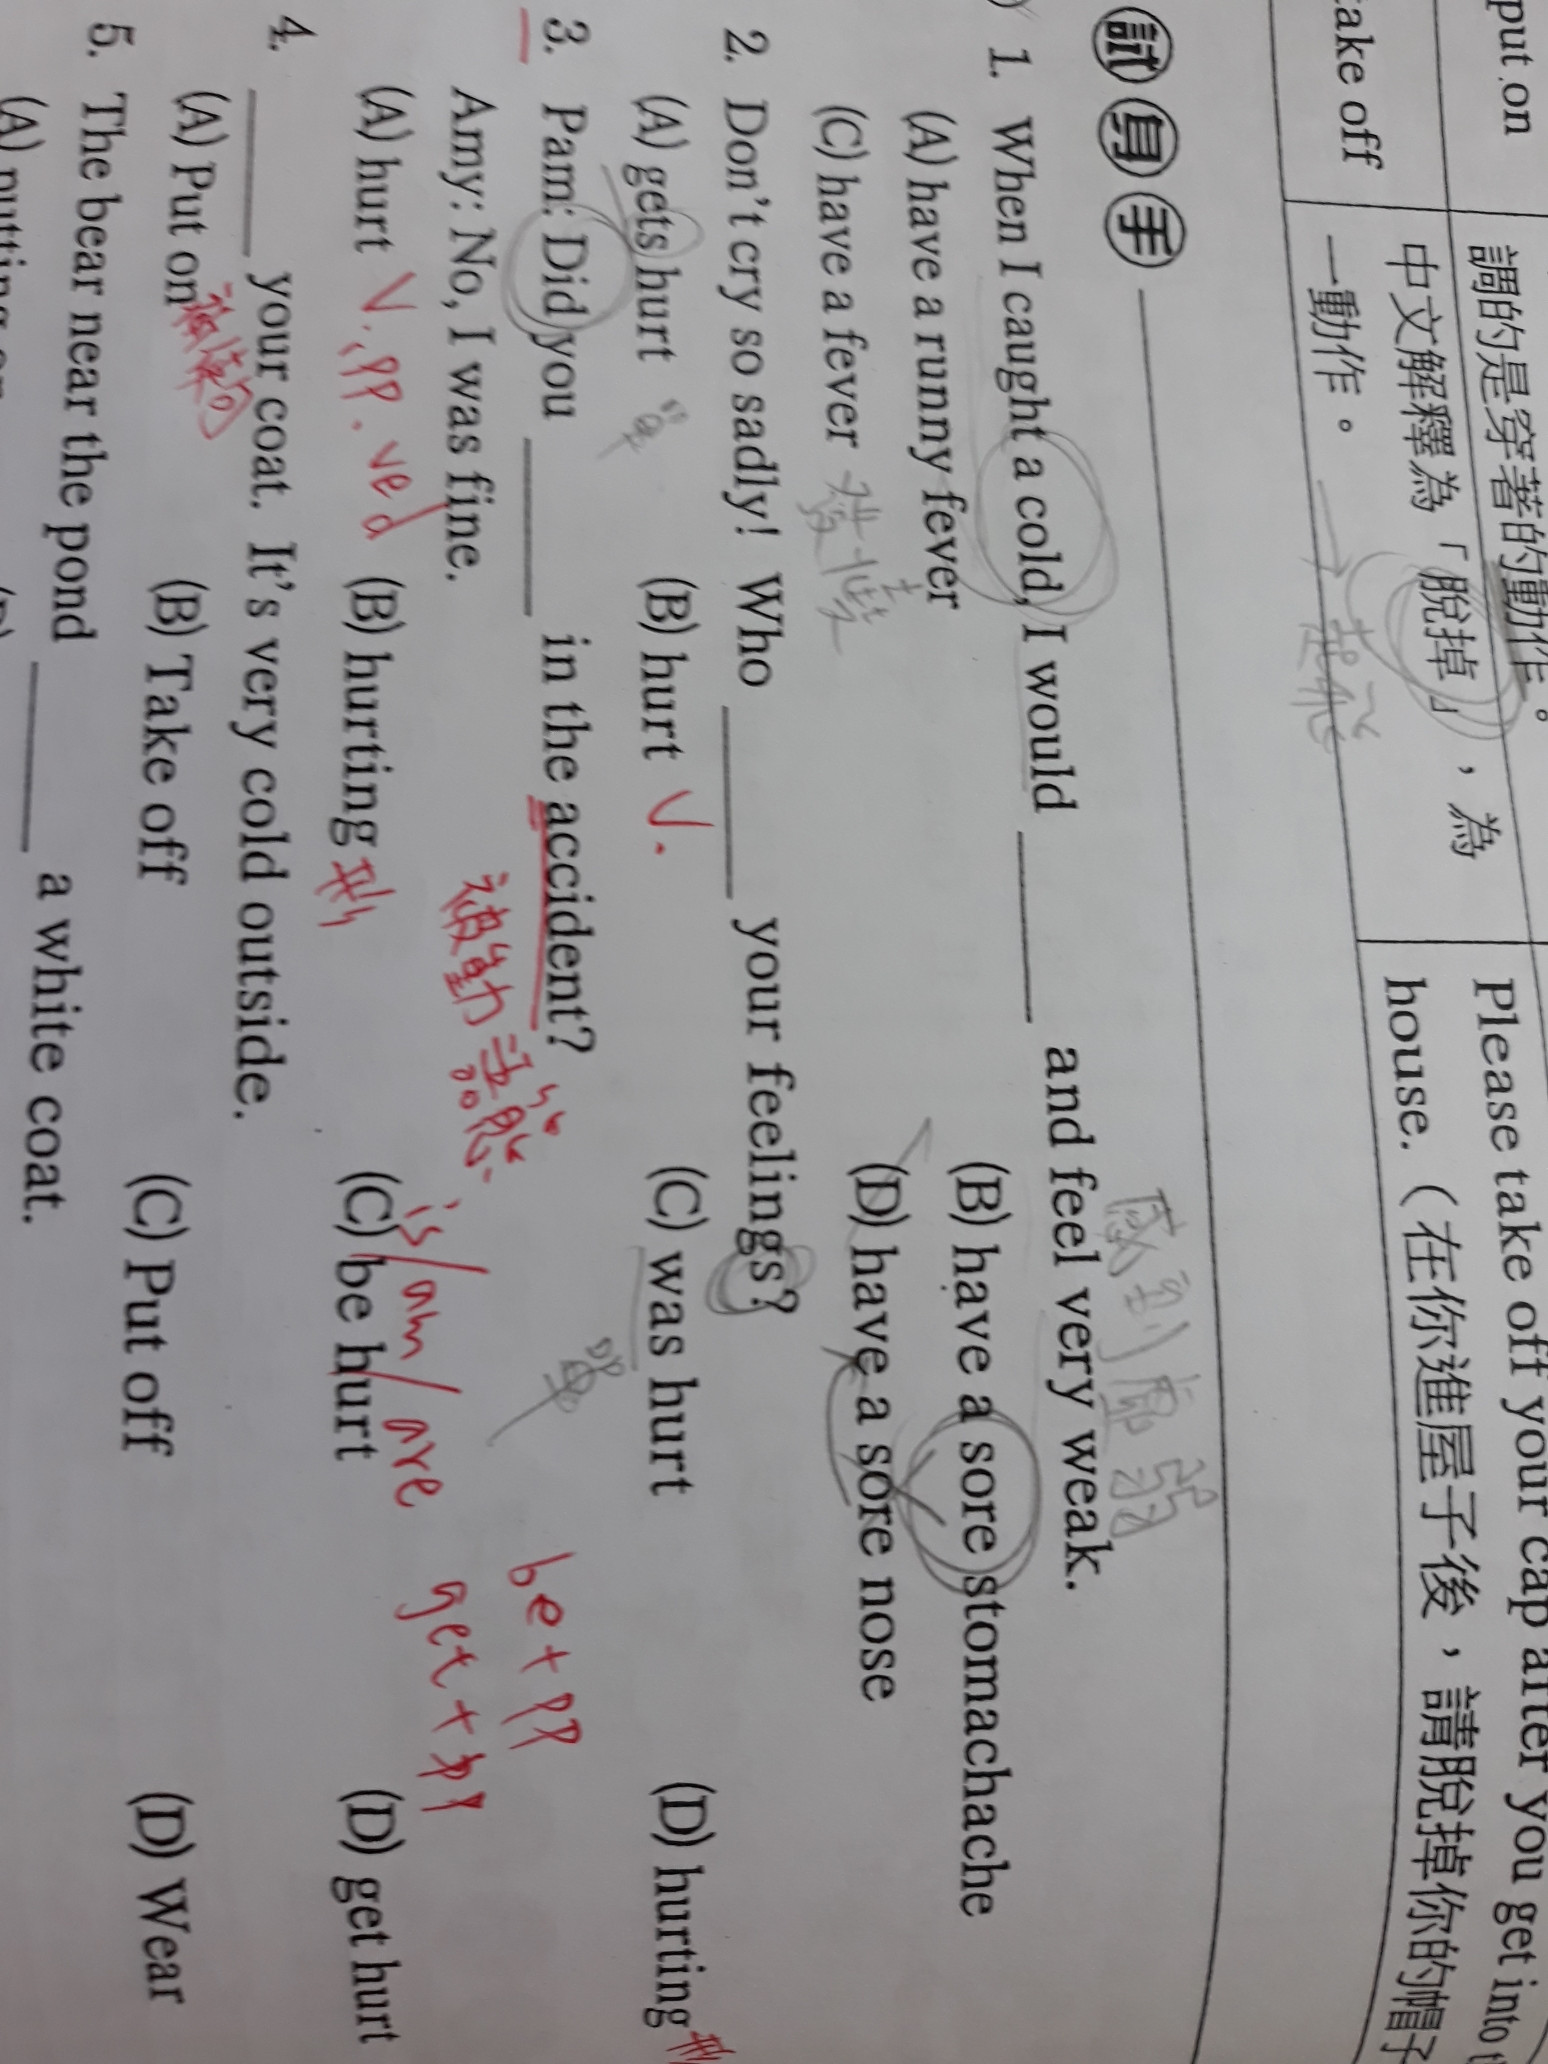 put on
調的是穿著的動作。
take off
中文解釋為「脫掉」，為
一動作。
起飛
Please take off your cap after you get into t
house.（在你進屋子後，請脫掉你的帽子
試身手
感到虛弱
1. When I caught a cold, I would ______ and feel very weak.
(A) have a runny fever (B) have a sore stomachache
(C) have a fever 發燒 (D) have a sore nose
2. Don't cry so sadly! Who ______ your feelings?
(A) gets hurt (B) hurt V. (C) was hurt (D) hurting
3. Pam: Did you ______ in the accident?
Amy: No, I was fine.
被動語態
be + PP
get + PP
is/am/are
(A) hurt V. PP. ved (B) hurting 形 (C) be hurt (D) get hurt
4. ______ your coat. It's very cold outside.
(A) Put on (B) Take off (C) Put off (D) Wear
5. The bear near the pond ______ a white coat.
(A) putting on